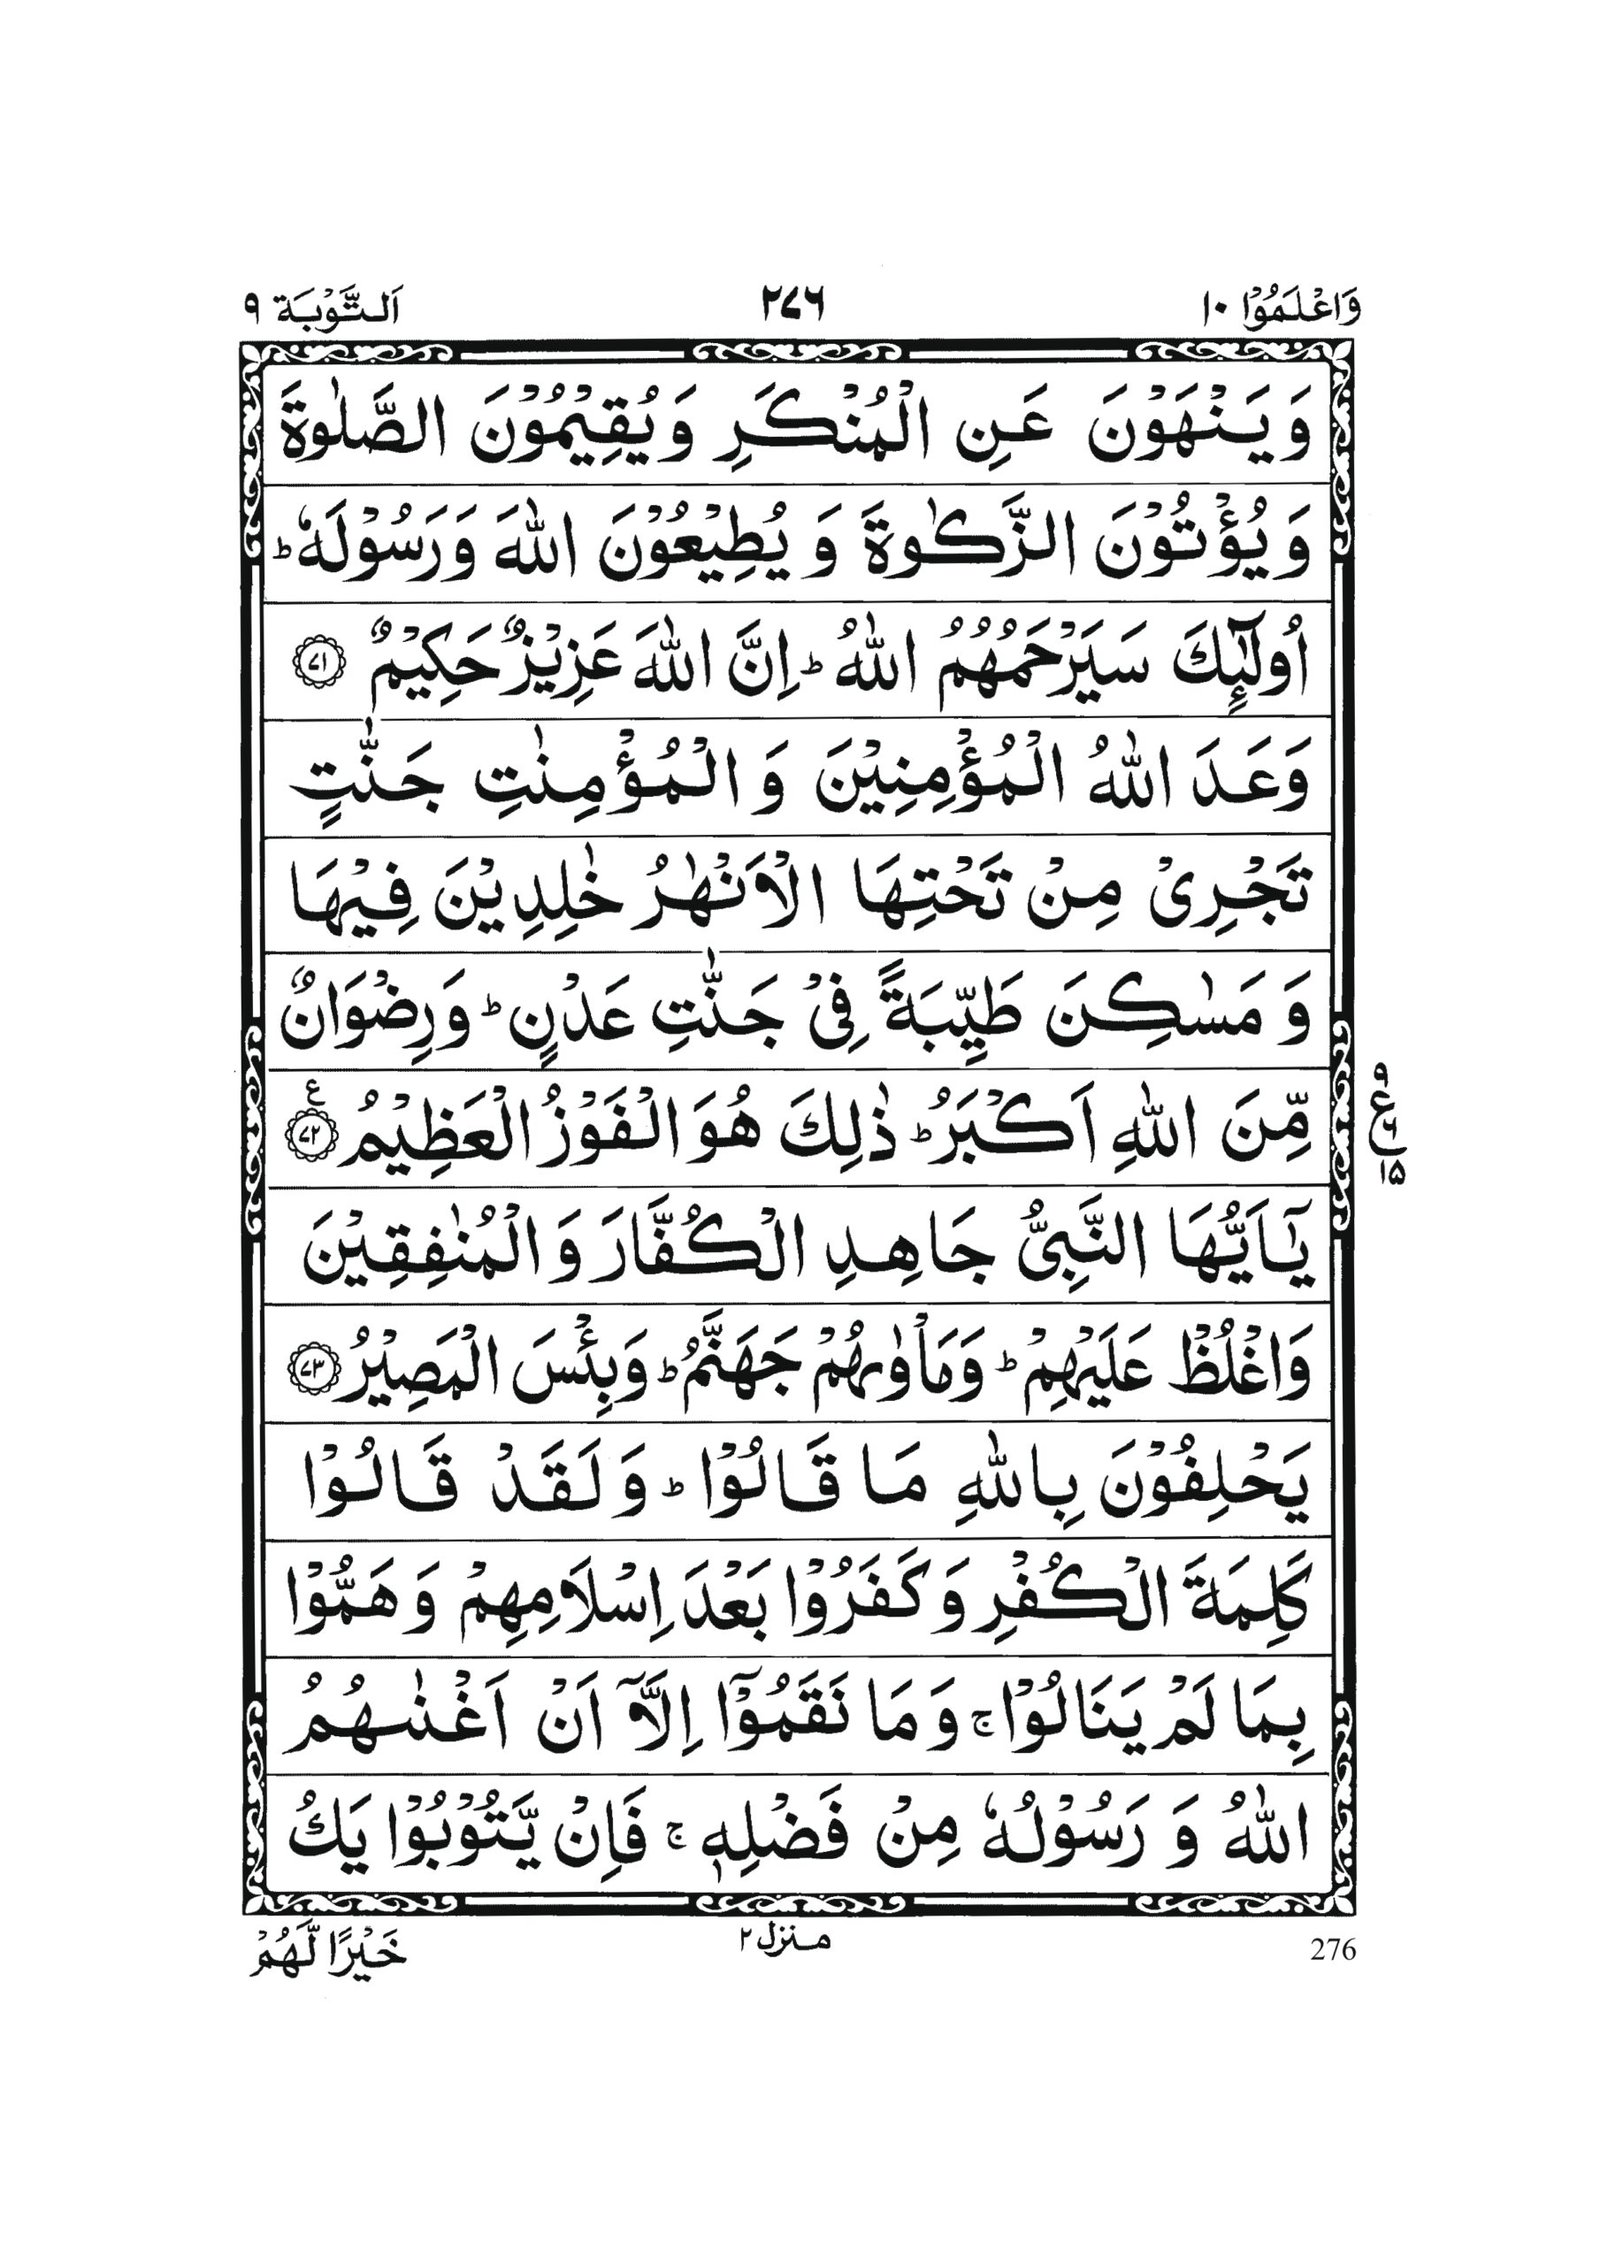 وَاعْلَمُوْۤا ١٠ ٢٧٦ اَلتَّوْبَة ٩
وَ يَنْهَوْنَ عَنِ الْمُنْكَرِ وَ يُقِيْمُوْنَ الصَّلٰوةَ
وَ يُؤْتُوْنَ الزَّكٰوةَ وَ يُطِيْعُوْنَ اللّٰهَ وَ رَسُوْلَهٗ ؕ
اُولٰٓئِكَ سَيَرْحَمُهُمُ اللّٰهُ ؕ اِنَّ اللّٰهَ عَزِيْزٌ حَكِيْمٌ ﴿٧١﴾
وَعَدَ اللّٰهُ الْمُؤْمِنِيْنَ وَ الْمُؤْمِنٰتِ جَنّٰتٍ
تَجْرِىْ مِنْ تَحْتِهَا الْاَنْهٰرُ خٰلِدِيْنَ فِيْهَا
وَ مَسٰكِنَ طَيِّبَةً فِىْ جَنّٰتِ عَدْنٍ ؕ وَ رِضْوَانٌ
مِّنَ اللّٰهِ اَكْبَرُ ؕ ذٰلِكَ هُوَ الْفَوْزُ الْعَظِيْمُ ﴿٧٢﴾ ع
٩ ع ٦ ١٥
يٰۤاَيُّهَا النَّبِىُّ جَاهِدِ الْكُفَّارَ وَ الْمُنٰفِقِيْنَ
وَاغْلُظْ عَلَيْهِمْ ؕ وَمَاْوٰىهُمْ جَهَنَّمُ ؕ وَبِئْسَ الْمَصِيْرُ ﴿٧٣﴾
يَحْلِفُوْنَ بِاللّٰهِ مَا قَالُوْا ؕ وَ لَقَدْ قَالُوْا
كَلِمَةَ الْكُفْرِ وَ كَفَرُوْا بَعْدَ اِسْلَامِهِمْ وَ هَمُّوْا
بِمَا لَمْ يَنَالُوْا ۚ وَ مَا نَقَمُوْۤا اِلَّاۤ اَنْ اَغْنٰىهُمُ
اللّٰهُ وَ رَسُوْلُهٗ مِنْ فَضْلِهٖ ۚ فَاِنْ يَّتُوْبُوْا يَكُ
276 منزل ٢ خَيْرًا لَّهُمْ